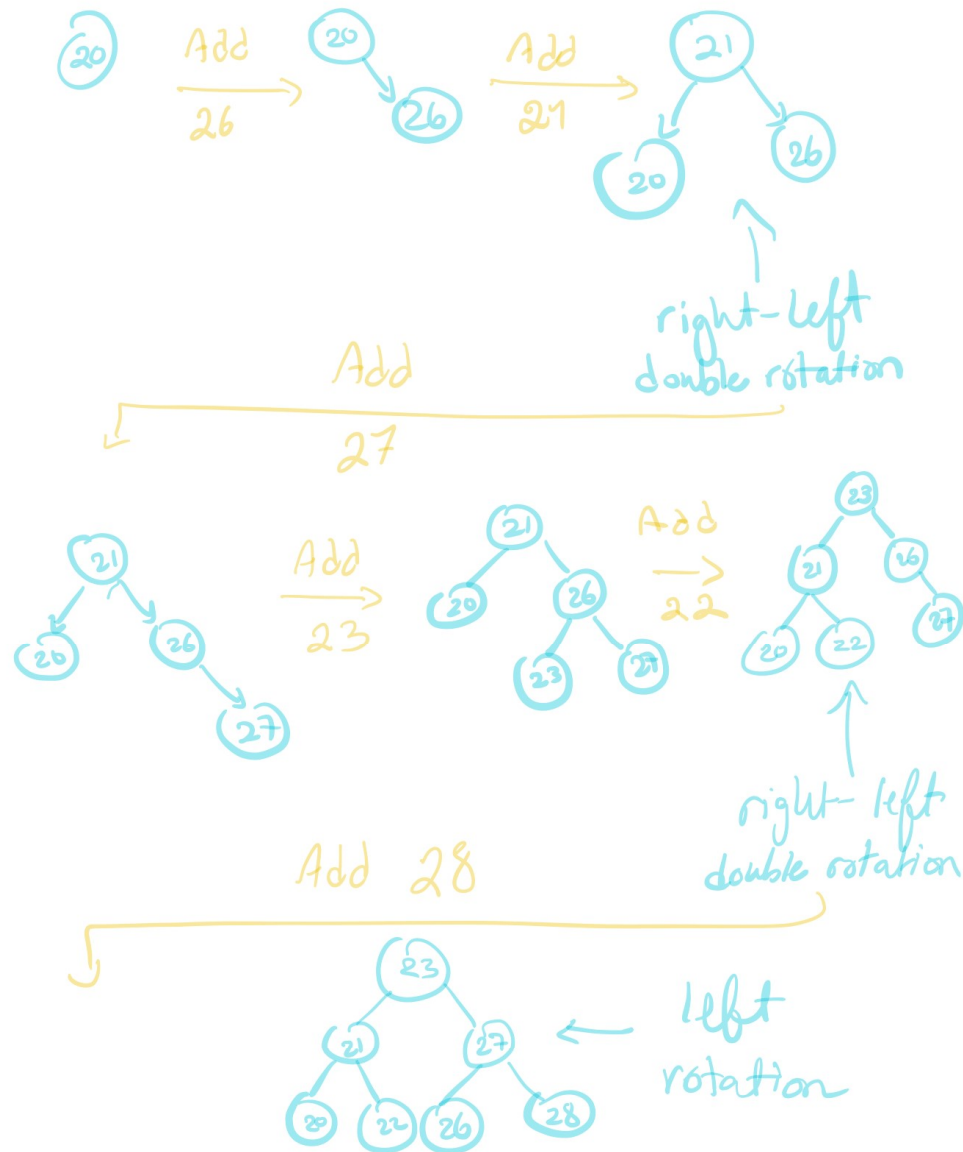 20
Add
26
20
26
Add
21
21
20
26
right-left
double rotation
Add
27
21
20
26
27
Add
23
21
20
26
23
27
Add
22
23
21
26
20
22
27
right-left
double rotation
Add 28
23
21
27
20
22
26
28
left
rotation